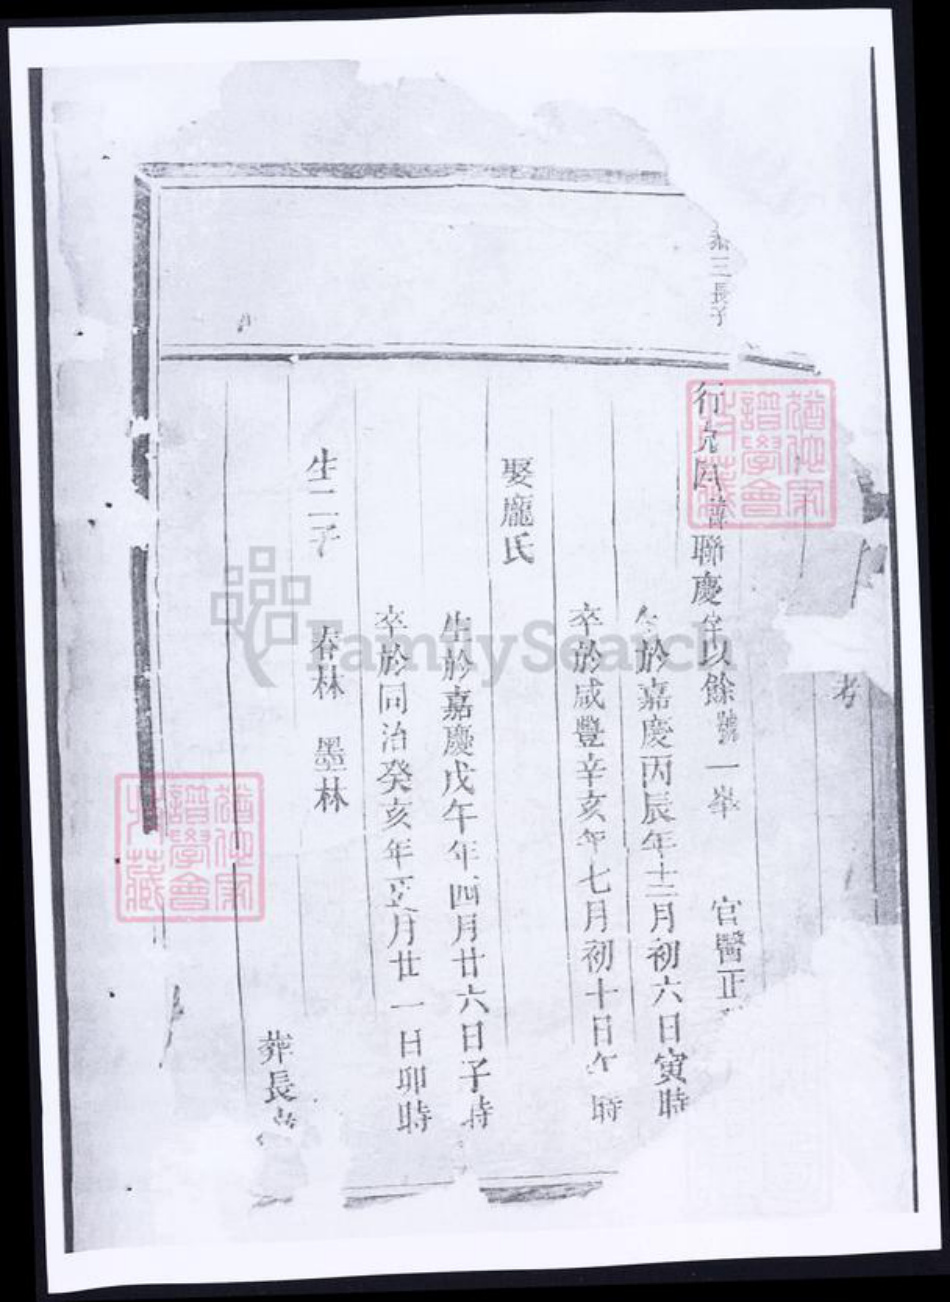 考
三長子
行
聯慶字以餘號一峯 官醫正
生於嘉慶丙辰年十二月初六日寅時
卒於咸豐辛亥年七月初十日午時
娶龐氏
生於嘉慶戊午年四月廿六日子時
卒於同治癸亥年正月廿一日卯時
生二子 春林 墨林
葬長
FamilySearch
猶他家
譜學會
收藏
猶他家
譜學會
收藏